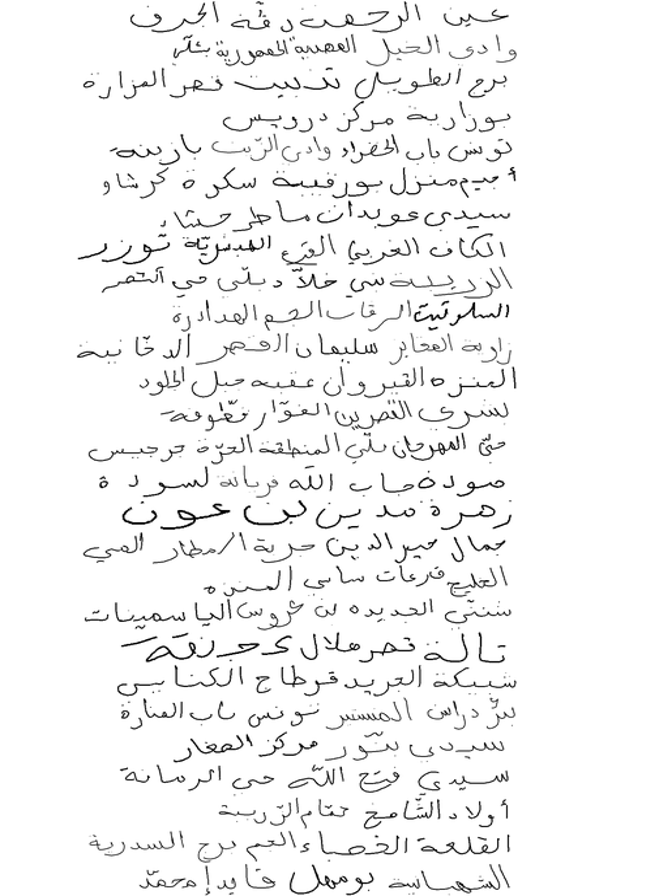 عين الرحمت دڨة الجرف
وادي الخيل القصبة الجمهورية
برج الطويل تدييت قصر المزارة
بوزارية مركز درويس
تونس باب الخضراء وادي الزيت بازينة
أجيم منزل بورقيبة سكرة كرشاو
سيدي عويدان ماطر حشاد
الكاف الغربي القرع توزر
الزريبة خلاد دبلي حي النصر
السلوقية الرقاب الجم الهدادرة
زاوية سليمان القصر الدخانية
المنزه القيروان عقبه جبل الجلود
بشرى القصرين الفوار قطوفة
حي المهرجان المنطقة الحرة جرجيس
جاب الله فريانة لسودة
زهرة مدين بن عون
جمال خير الدين حرية المطار
الخليج قرعات سامي المنزه
شنني الجديده بن عروس الياسمينات
تالة قصر هلال
شبيكة الجريد قرطاج الكنايس
بئر دراس المنستير تونس باب المنارة
سيدي بنور مركز
سيدي فتح الله حي الرمانة
أولاد الشامخ حمام الزريبة
القلعة الخصباء الجم برج السدرية
بومهل قايد إمحمد